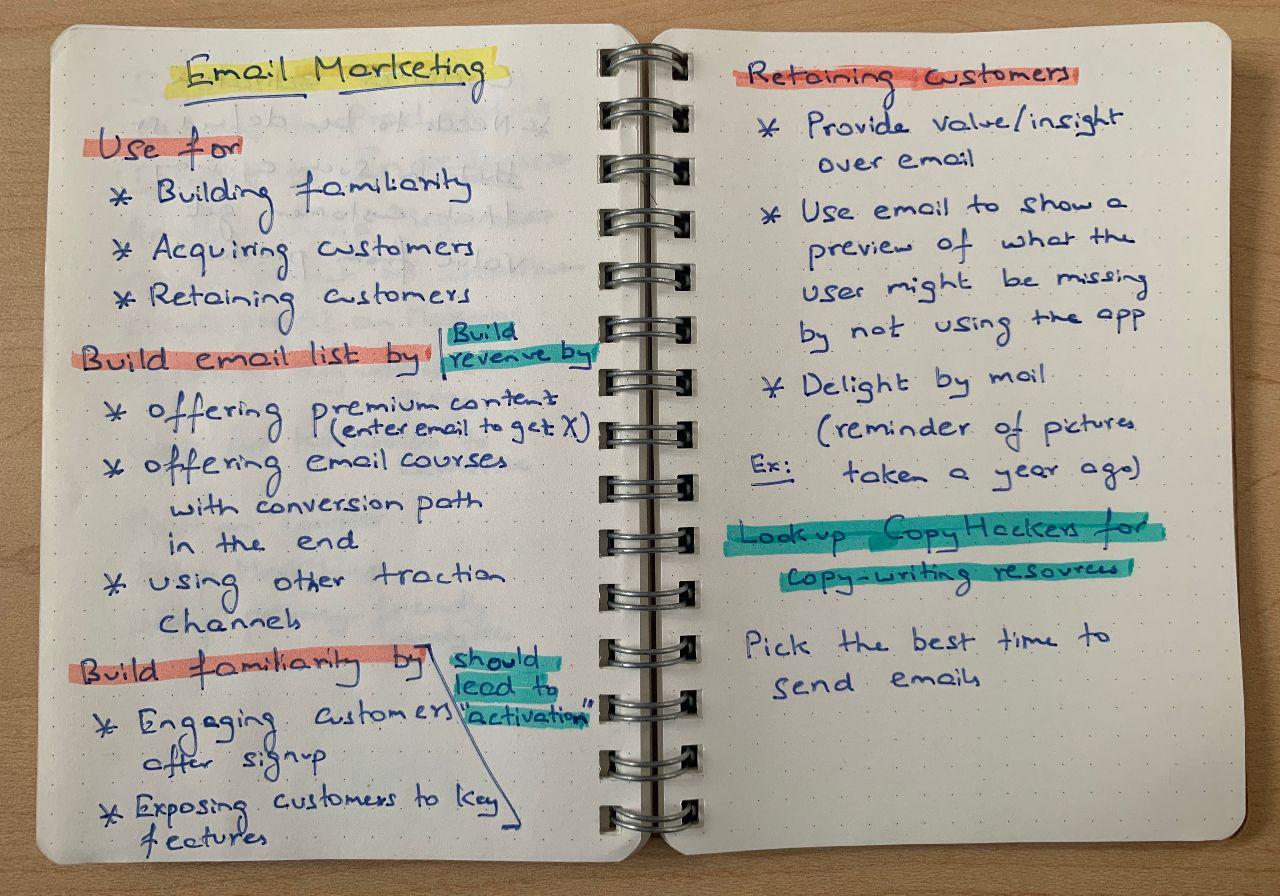 Email Marketing
Use for
* Building familiarity
* Acquiring customers
* Retaining customers
Build email list by
Build
revenue by
* offering premium content
(enter email to get X)
* offering email courses
with conversion path
in the end
* using other traction
channels
Build familiarity by
should
lead to
"activation"
* Engaging customers
after signup
* Exposing customers to key
features
Retaining customers
* Provide value/insight
over email
* Use email to show a
preview of what the
user might be missing
by not using the app
* Delight by mail
(reminder of pictures
Ex: taken a year ago)
Look up CopyHackers for
copy-writing resources
Pick the best time to
send emails